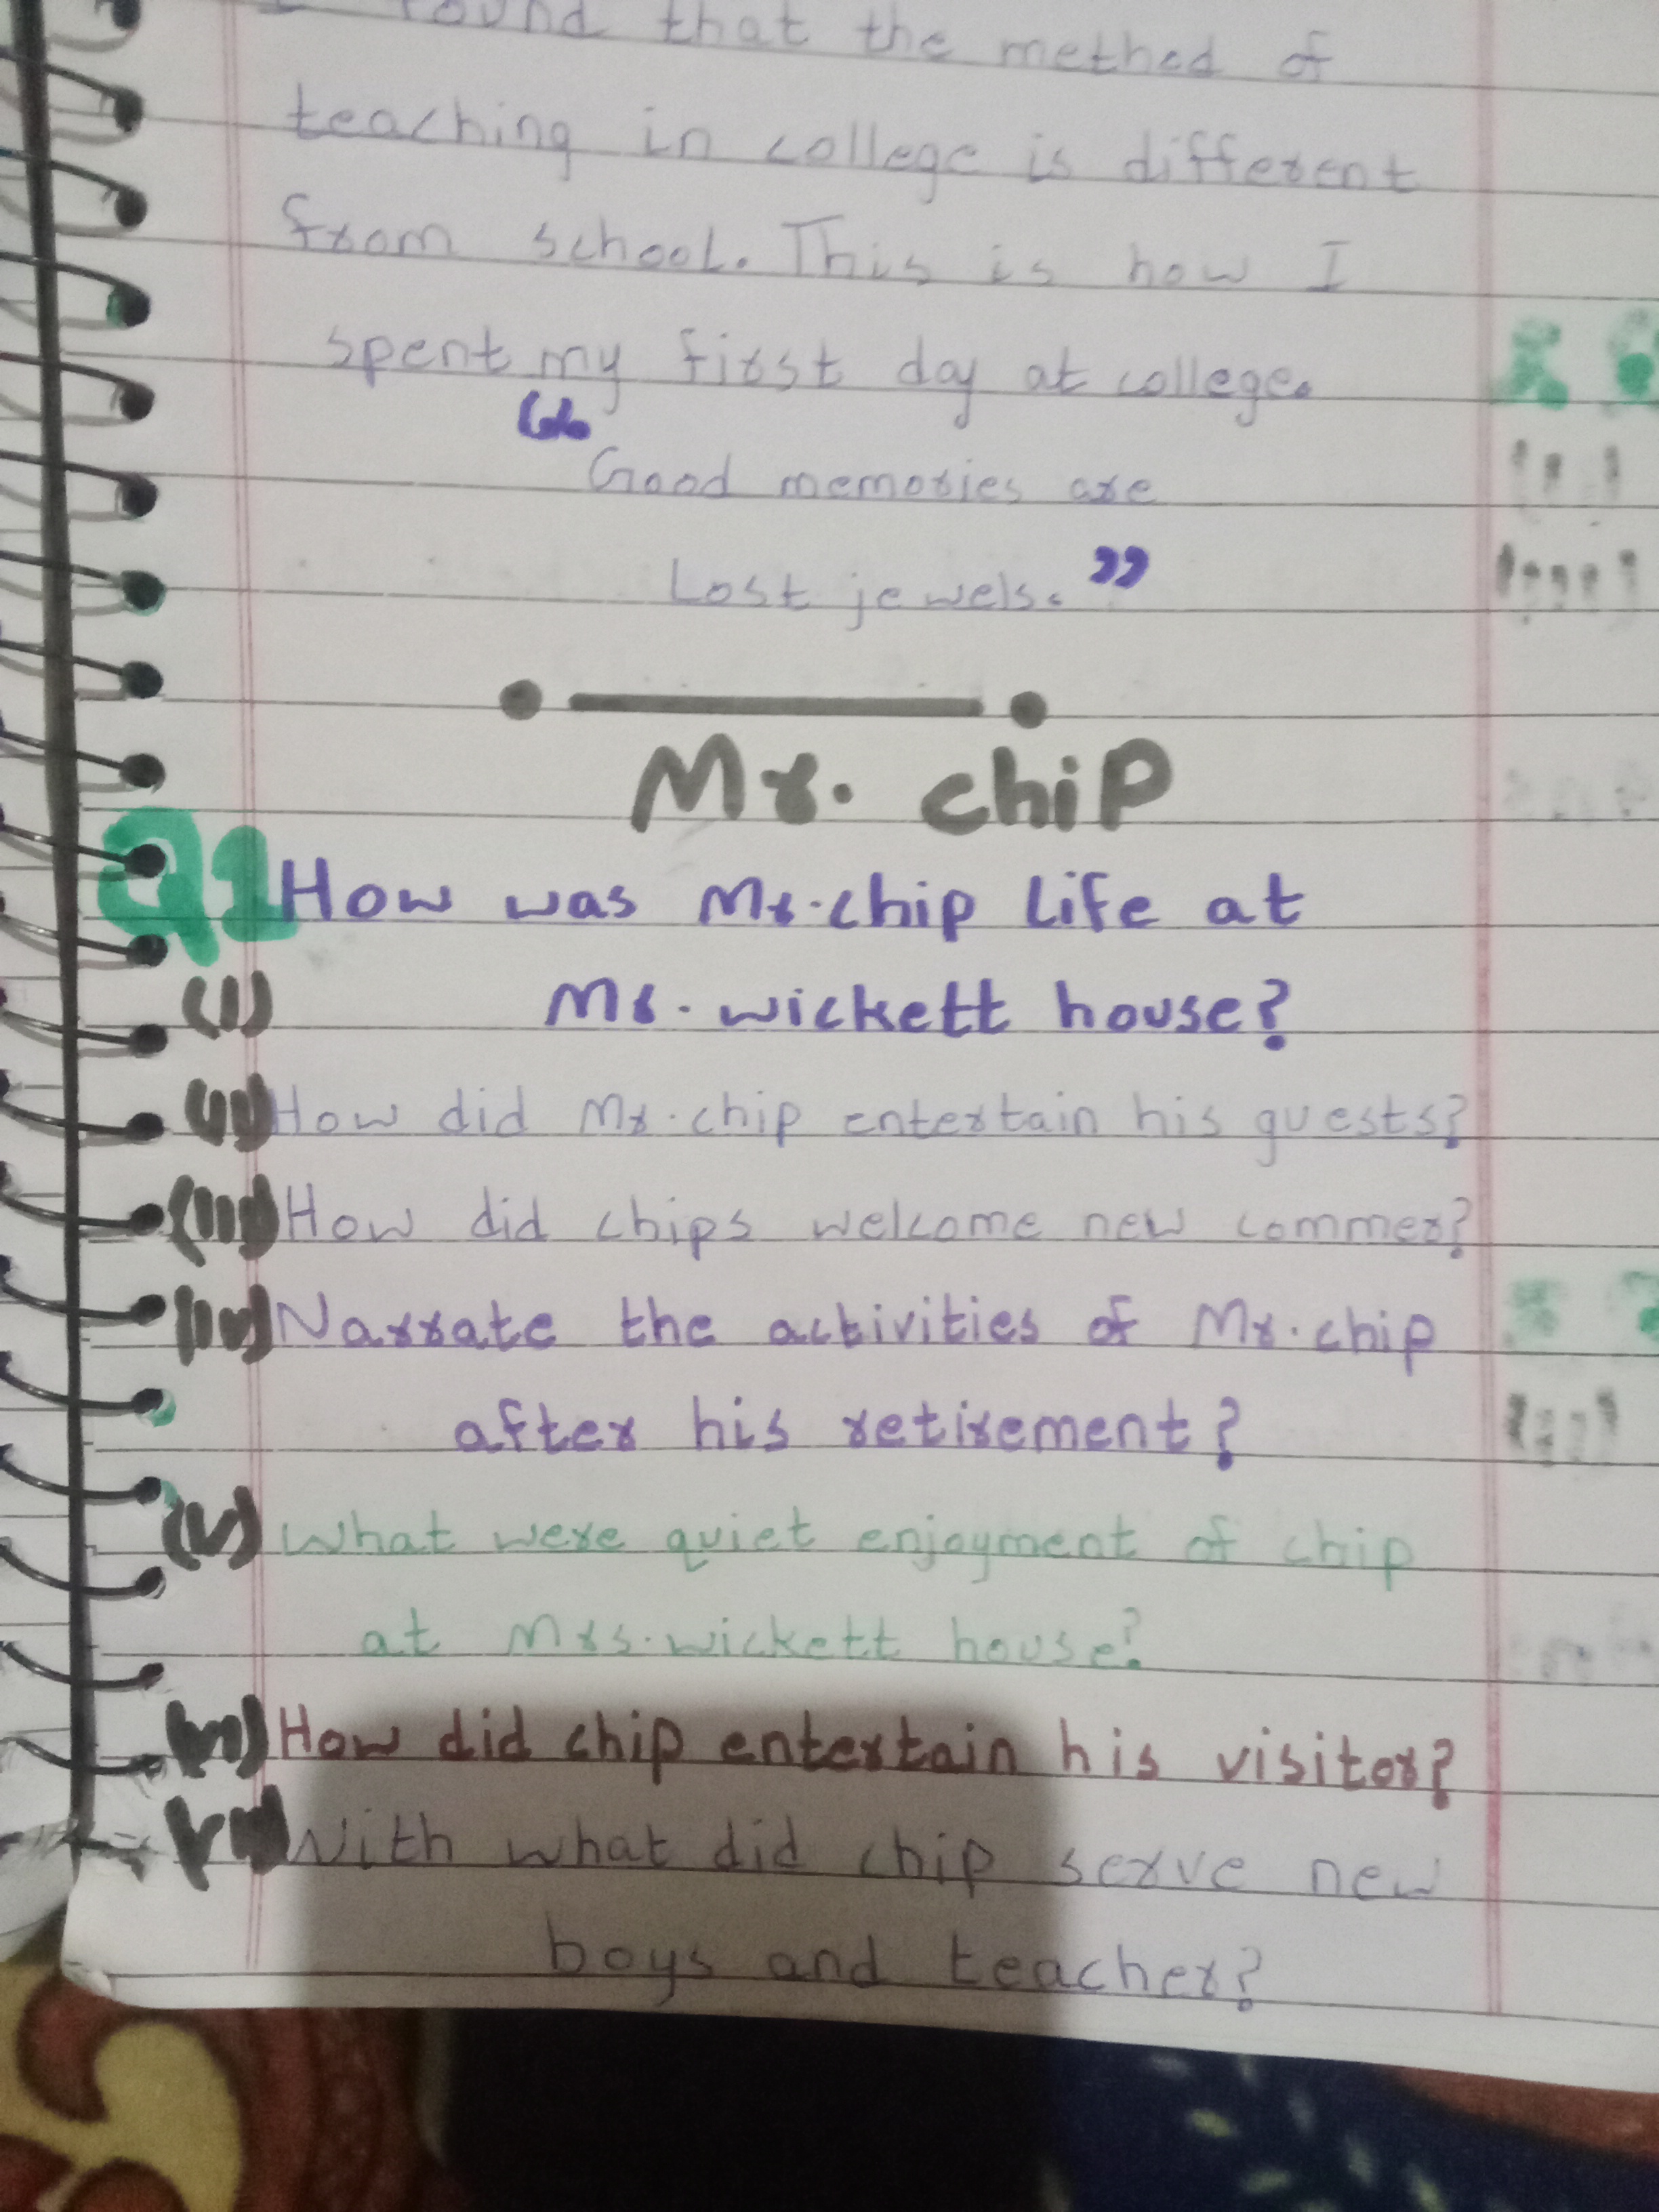 I found that the method of
teaching in college is different
from school. This is how I
spent my first day at college.
“Good memories are
Lost jewels.”
Mr. chip
Q1 How was Mr. chip Life at
(I) Mr. wickett house?
(II) How did Mr. chip entertain his guests?
(III) How did chips welcome new commer?
(IV) Narrate the activities of Mr. chip
after his retirement?
(V) What were quiet enjoyment of chip
at Mrs. wickett house?
(VI) How did chip entertain his visitor?
With what did chip serve new
boys and teacher?